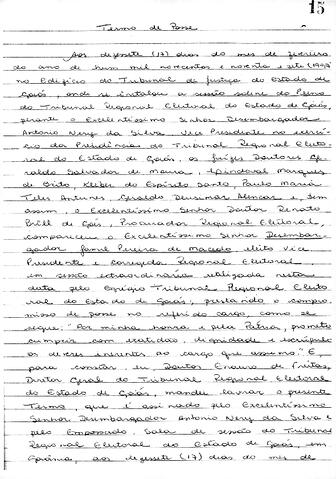 15
Termo de Posse
Aos dezessete (17) dias do mes de fevereiro
do ano de hum mil novecentos e noventa e sete (1997
no Edifício do Tribunal de Justiça do Estado de
Goiás, onde se instalou a sessão solene do Pleno
do Tribunal Regional Eleitoral do Estado de Goiás,
perante o Excelentíssimo Senhor Desembargador
Antonio Nery da Silva, Vice Presidente no exercí-
cio da Presidência do Tribunal Regional Eleito-
ral do Estado de Goiás, os juízes Doutores
Salvador de Moura, Marques
de Brito, Kleber do Espírito Santo, Paulo Maria
Teles Antunes, Geraldo Deusimar Alencar e, sem
assim, o Excelentíssimo Senhor Doutor Renato
Brill de Góis, Procurador Regional Eleitoral,
compareceu o Excelentíssimo Senhor Desembar-
gador Jamil Pereira de Macedo eleito Vice
Presidente e Corregedor Regional Eleitoral
em sessão extraordinária realizada nesta
data pelo Egrégio Tribunal Regional Eleito
ral do Estado de Goiás, prestando o compro
misso de posse no referido cargo, como se
segue: "Por minha honra e pela Pátria, prometo
cumprir com exatidão, dignidade e escrúpulo
os deveres inerentes ao cargo que assumo." E
para constar, eu, Doutor de Freitas,
Diretor Geral do Tribunal Regional Eleitoral
do Estado de Goiás, mandei lavrar o presente
Termo, que é assinado pelo Excelentíssimo
Senhor Desembargador Antonio Nery da Silva e
pelo Empossado. Sala de sessão do Tribunal
Regional Eleitoral do Estado de Goiás, em
Goiânia, aos dezessete (17) dias do mes de